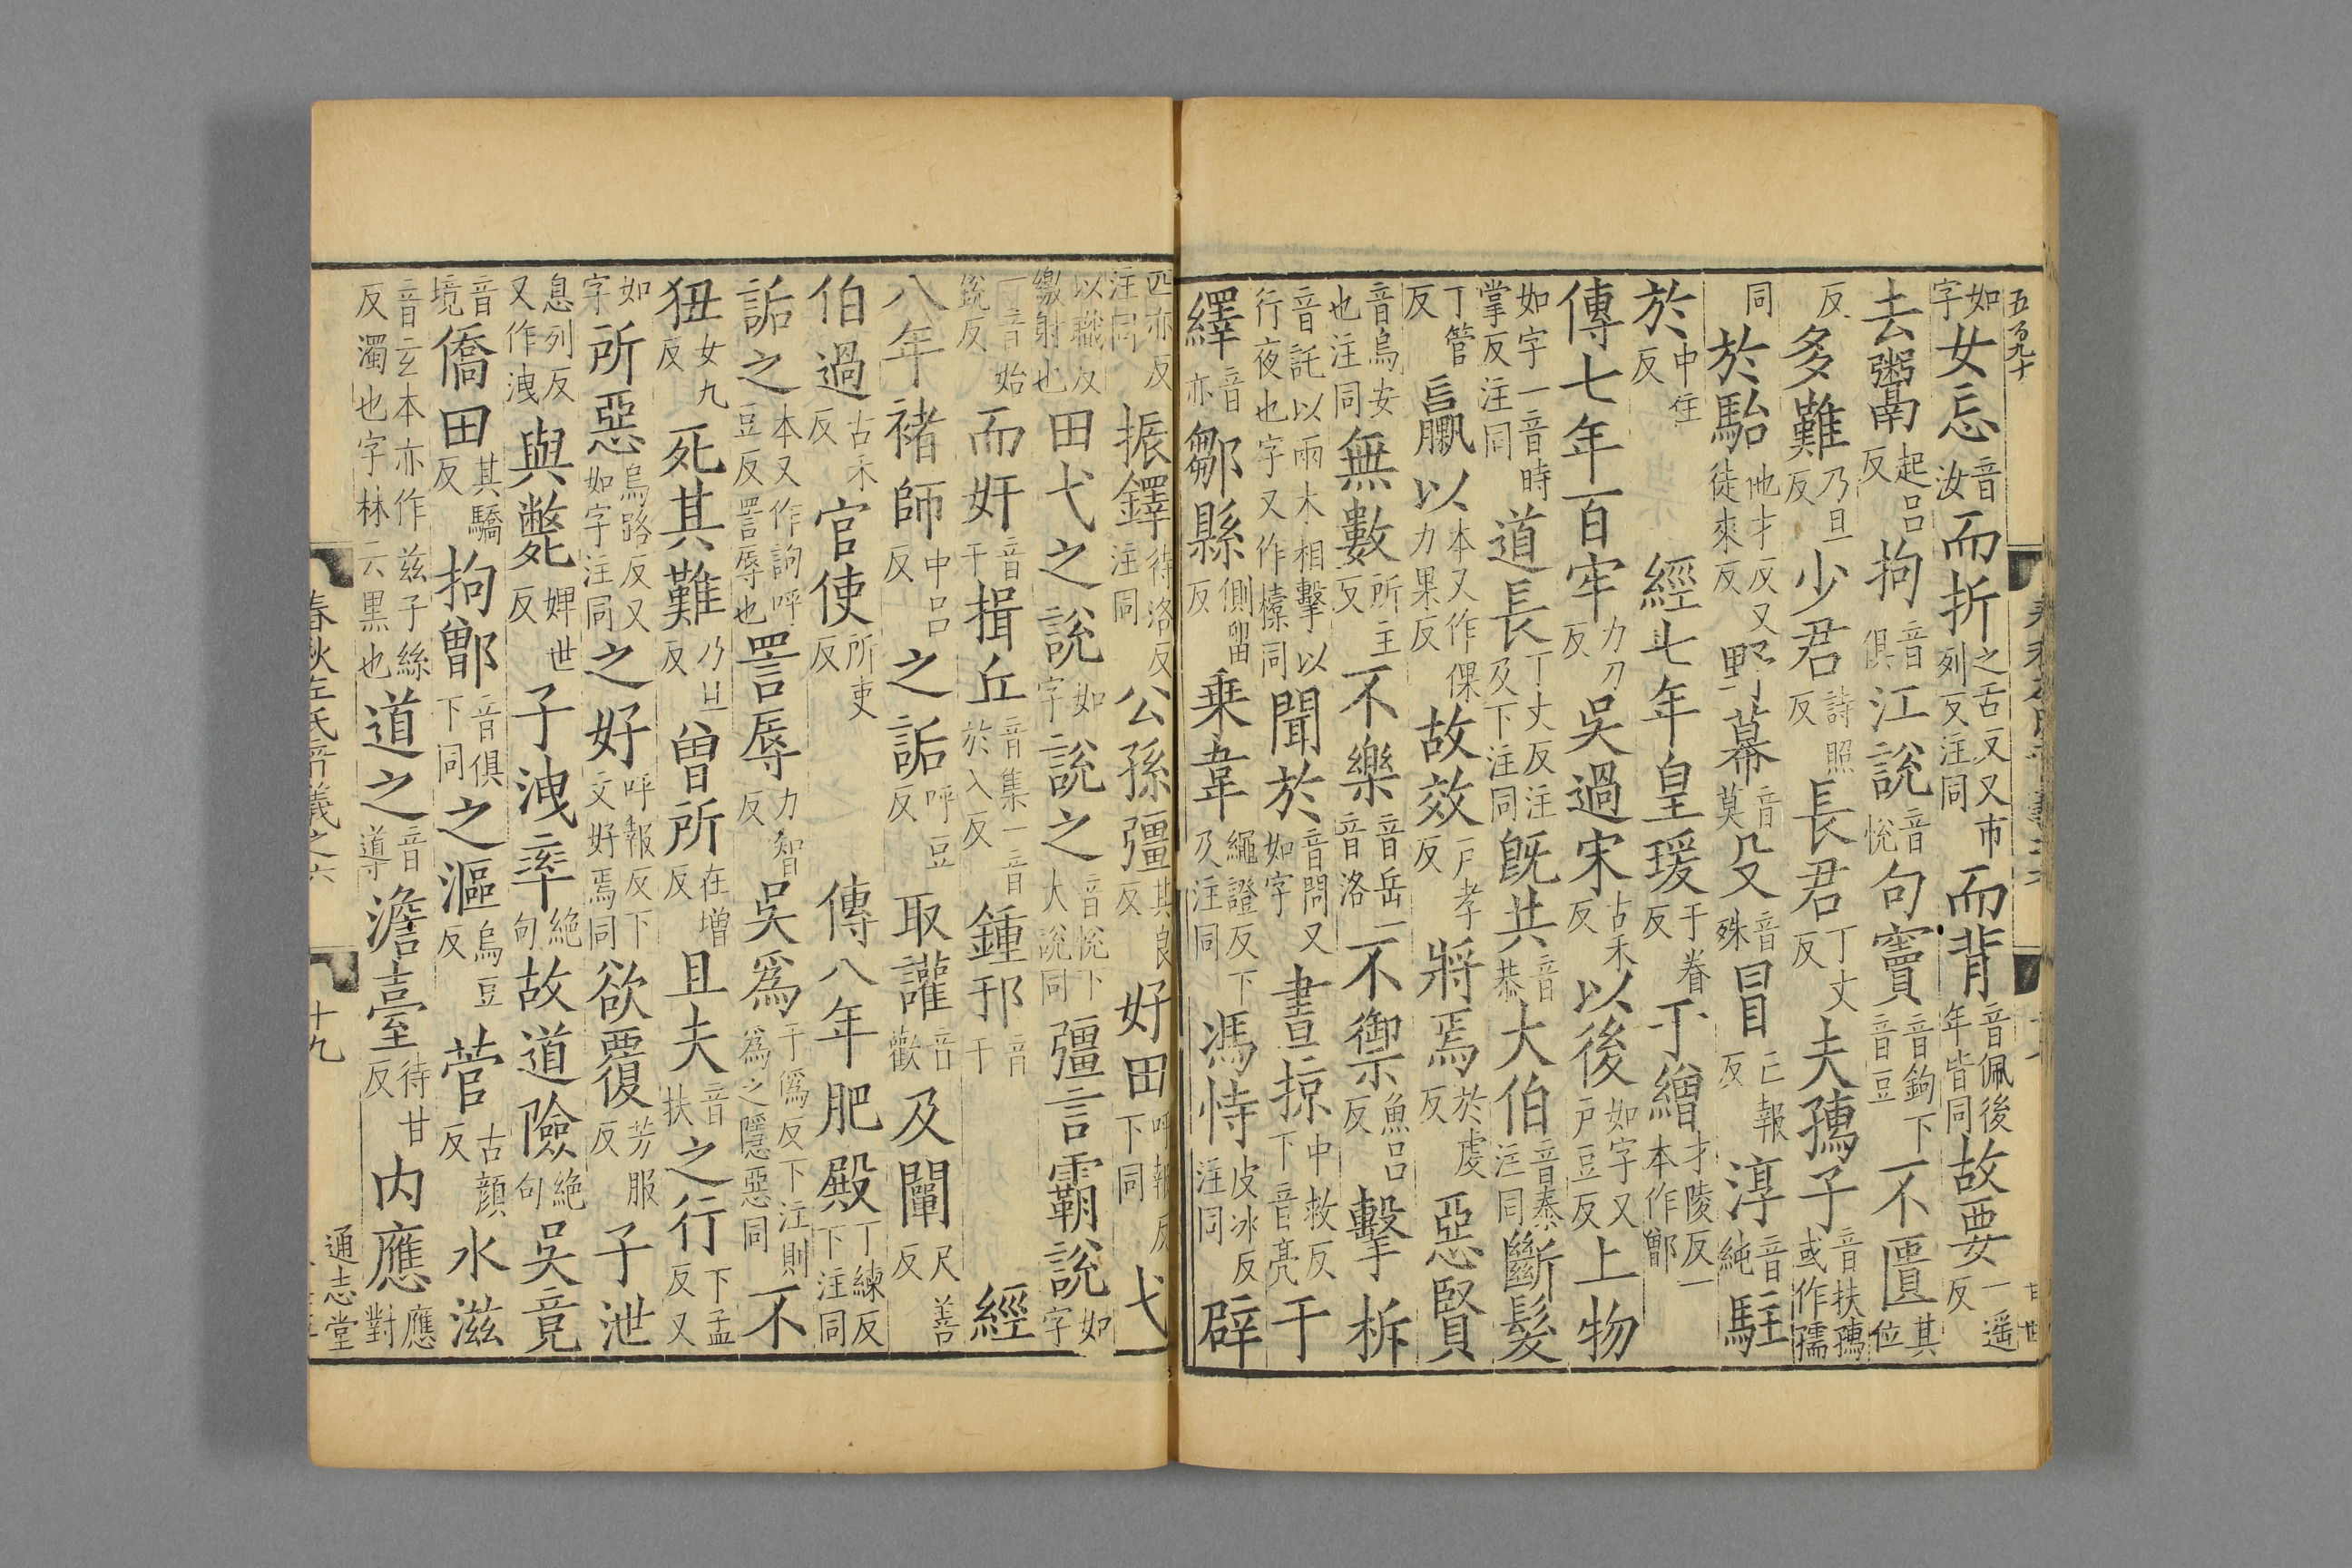 五百九十
如字女忘音汝而折之舌反又市列反注同而背音佩後年皆同故要一遥反
去鬻起呂反拘音俱江說音悅句竇音鉤下音豆不匱其位
反多難乃旦反少君詩照反長君丁丈反夫㺄子音扶㺄或作孺
同於駘他才反又徒來反野幕音莫殳音殊冒亡報反淳音純駐
於中住反經七年皇瑗于眷反于繒才陵反一本作鄫
傳七年百牢力刀反吳過宋古禾反以後如字又戶豆反上物
如字一音時掌反注同道長丁丈反注及下注同旣共音恭大伯音泰注同斷髮
丁管反臝以本又作倮力果反故效戶孝反將焉於虔反惡賢
音烏安也注同無數所主反不樂音岳一音洛不禦魚呂反擊柝
音託以兩木相擊以行夜也字又作㯓同聞於音問又如字晝掠中救反下音亮于
繹音亦鄒縣側留反乗韋繩證反下及注同馮恃皮冰反注同辟
匹亦反注同振鐸待洛反注同公孫彊其良反好田呼報反下同弋
以職反繳射也田弋之說如字說之音悅下大說同彊言霸說如字
一音始銳反而奸音干揖丘音集一音於入反鍾邘音于經
八年褚師中呂反之詬呼豆反取讙音歡及闡尺善反
伯過古禾反官使所吏反傳八年肥殿丁練反下注同
詬之本又作訽呼豆反詈辱也詈辱力智反吳爲于僞反下注則爲之隱惡同不
狃女九反死其難乃旦反曽所在增反且夫音扶之行下孟反又
如字所惡烏路反又如字注同之好呼報反下文好焉同欲覆芳服反子泄
息列反又作洩與斃婢世反子洩率絶句故道險絶句吳竟
音境僑田其驕反拘鄫音俱下同之漚烏豆反菅古顔反水滋
音玄本亦作兹子絲反濁也字林云黒也道之音導澹臺待甘反内應應對
春秋左氏音義之六
十九
通志堂